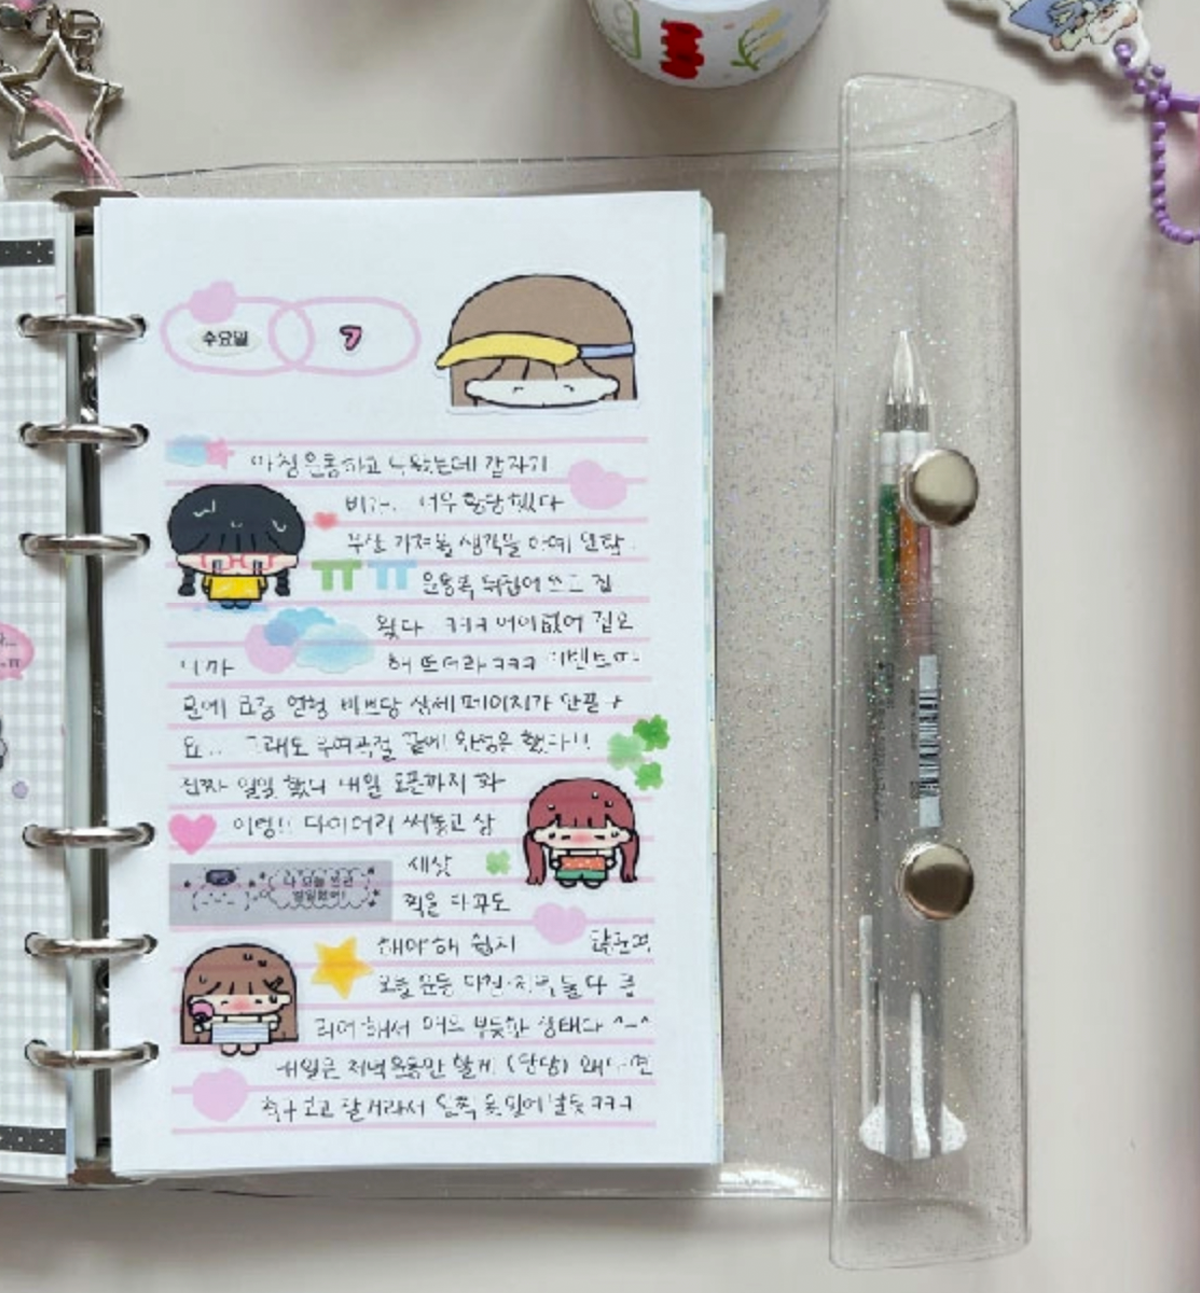 수요일 7
아침 운동하고 나왔는데 갑자기
비가.. 너무 황당했다
우산 가져올 생각을 아예 안함.
ㅠㅠ 운동복 뒤집어 쓰고 집
왔다 ㅋㅋㅋ 어이없어 집오
니까 해 뜨더라 ㅋㅋㅋ 이벤트 때
문에 요즘 연형 바쁘당 상세페이지가 안끝나
요.. 그래도 우여곡절 끝에! 완성은 했다!!
진짜 열일 했다 내일 오픈까지 화
이링!! 다이어리 써놓고 상
세샷
나 오늘 완전
열일했어!
찍을 다꾸도
해야해 쉽지
오늘 운동 아침·저녁 둘 다 클
리어 해서 매우 뿌듯한 상태다 ^-^
내일은 저녁운동만 할게 (당당) 왜냐면
축구보고 잘거라서 일찍 못 일어날듯 ㅋㅋㅋ